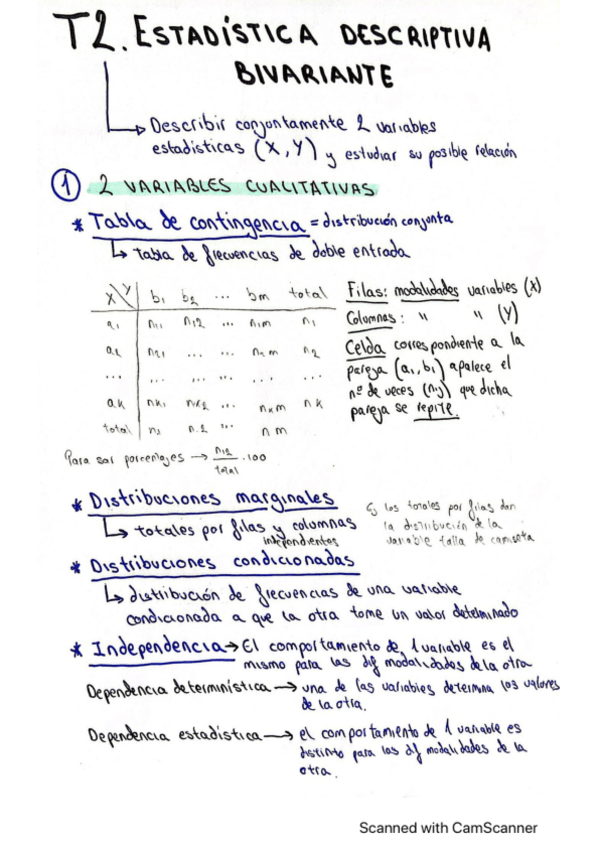 T2. ESTADÍSTICA DESCRIPTIVA
BIVARIANTE
Describir conjuntamente 2 variables
estadísticas (X, Y) y estudiar su posible relación
1 2 VARIABLES CUALITATIVAS
* Tabla de contingencia = distribución conjunta
↳ tabla de frecuencias de doble entrada
X \ Y b1 b2 ... bm total
a1 n11 n12 ... n1m n1
a2 n21 ... ... n2m n2
... ... ... ... ...
ak nk1 nk2 ... nkm nk
total n1 n.2 ... nm
Filas: modalidades variables (X)
Columnas: " " (Y)
Celda correspondiente a la
pareja (a1, b1) aparece el
nº de veces (nij) que dicha
pareja se repite.
Para sar porcentajes → n12/total · 100
* Distribuciones marginales
↳ totales por filas y columnas
independientes
↳ los totales por filas dan
la distribución de la
variable talla de camiseta
* Distribuciones condicionadas
↳ distribución de frecuencias de una variable
condicionada a que la otra tome un valor determinado
* Independencia → El comportamiento de 1 variable es el
mismo para las dif modalidades de la otra
Dependencia determinística → una de las variables determina los valores
de la otra.
Dependencia estadística → el comportamiento de 1 variable es
distinto para las dif modalidades de la
otra.
Scanned with CamScanner